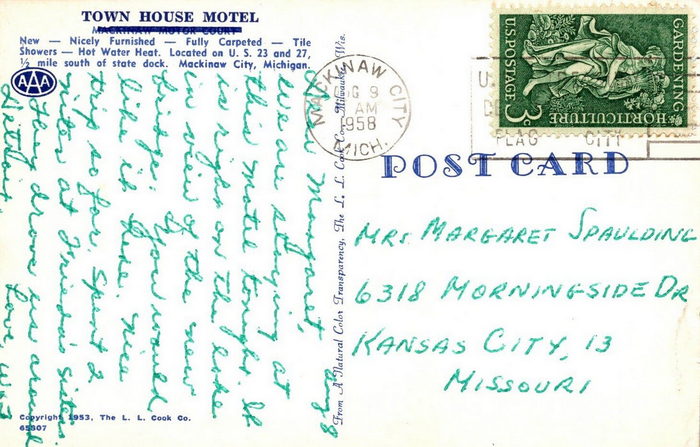 TOWN HOUSE MOTEL
MACKINAW MOTOR COURT
New — Nicely Furnished — Fully Carpeted — Tile
Showers — Hot Water Heat. Located on U. S. 23 and 27,
½ mile south of state dock. Mackinaw City, Michigan.
AAA
Aug 8
Dear Margaret,
We are staying at
this motel tonight. It
is right on the lake
in view of the new
bridge. You would
like it here. Nice
trip so far. Spent 2
nites at Frieda's sister.
They drove us around
Detroit. Love W &
Copyright 1953, The L. L. Cook Co.
65807
From A Natural Color Transparency, The L. L. Cook Co., Milwaukee, Wis.
MACKINAW CITY
AUG 9
AM
1958
MICH.
FLAG CITY
GARDENING
HORTICULTURE
U.S. POSTAGE 3¢
POST CARD
MRS MARGARET SPAULDING
6318 MORNINGSIDE DR
KANSAS CITY, 13
MISSOURI